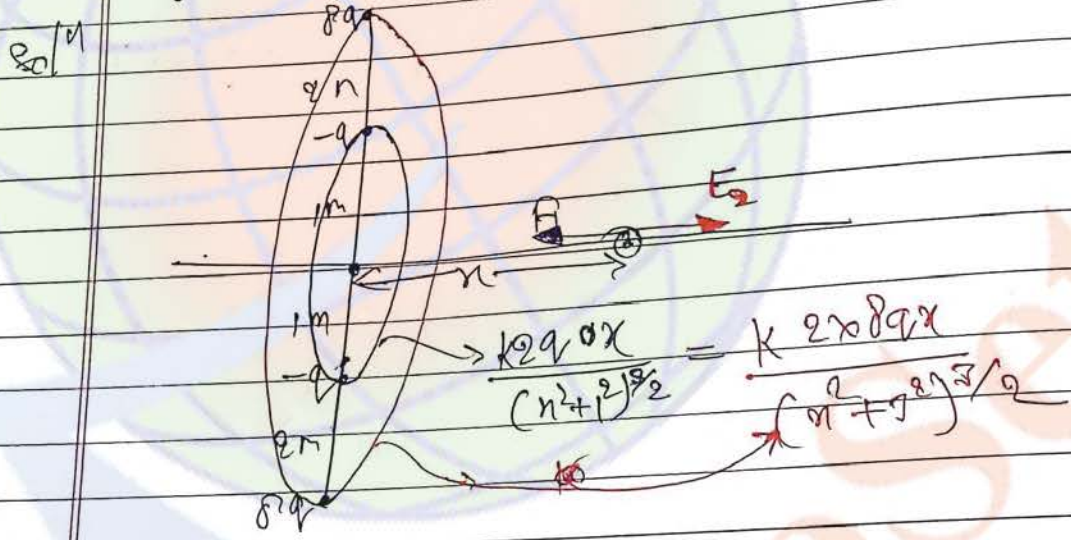 Sol^n
8q
2m
-q
1m
E_1
E_2
x
1m
-q
2m
8q
\frac{K2q \cdot x}{(x^2+1^2)^{3/2}} = \frac{K 2 \times 8qx}{(x^2+3^2)^{3/2}}